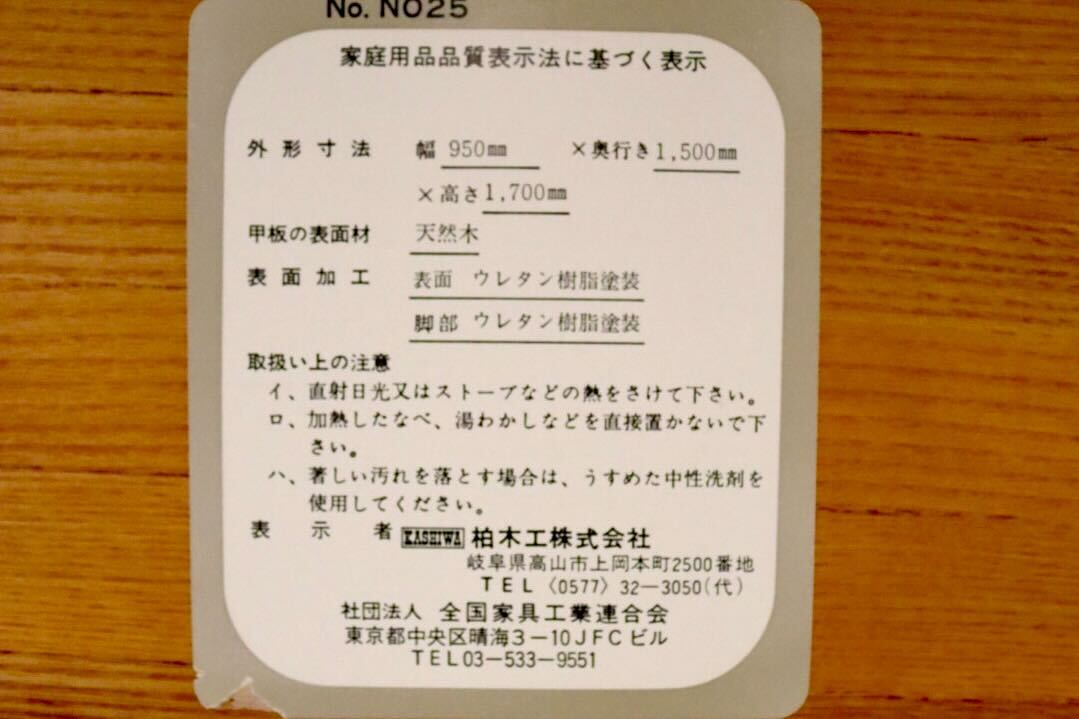 No. NO25
家庭用品品質表示法に基づく表示
外形寸法 幅 950㎜ ×奥行き1,500㎜
×高さ1,700㎜
甲板の表面材 天然木
表面加工 表面 ウレタン樹脂塗装
脚部 ウレタン樹脂塗装
取扱い上の注意
イ、直射日光又はストーブなどの熱をさけて下さい。
ロ、加熱したなべ、湯わかしなどを直接置かないで下
さい。
ハ、著しい汚れを落とす場合は、うすめた中性洗剤を
使用してください。
表示者 KASHIWA 柏木工株式会社
岐阜県高山市上岡本町2500番地
TEL〈0577〉32-3050(代)
社団法人 全国家具工業連合会
東京都中央区晴海3-10JFCビル
TEL03-533-9551